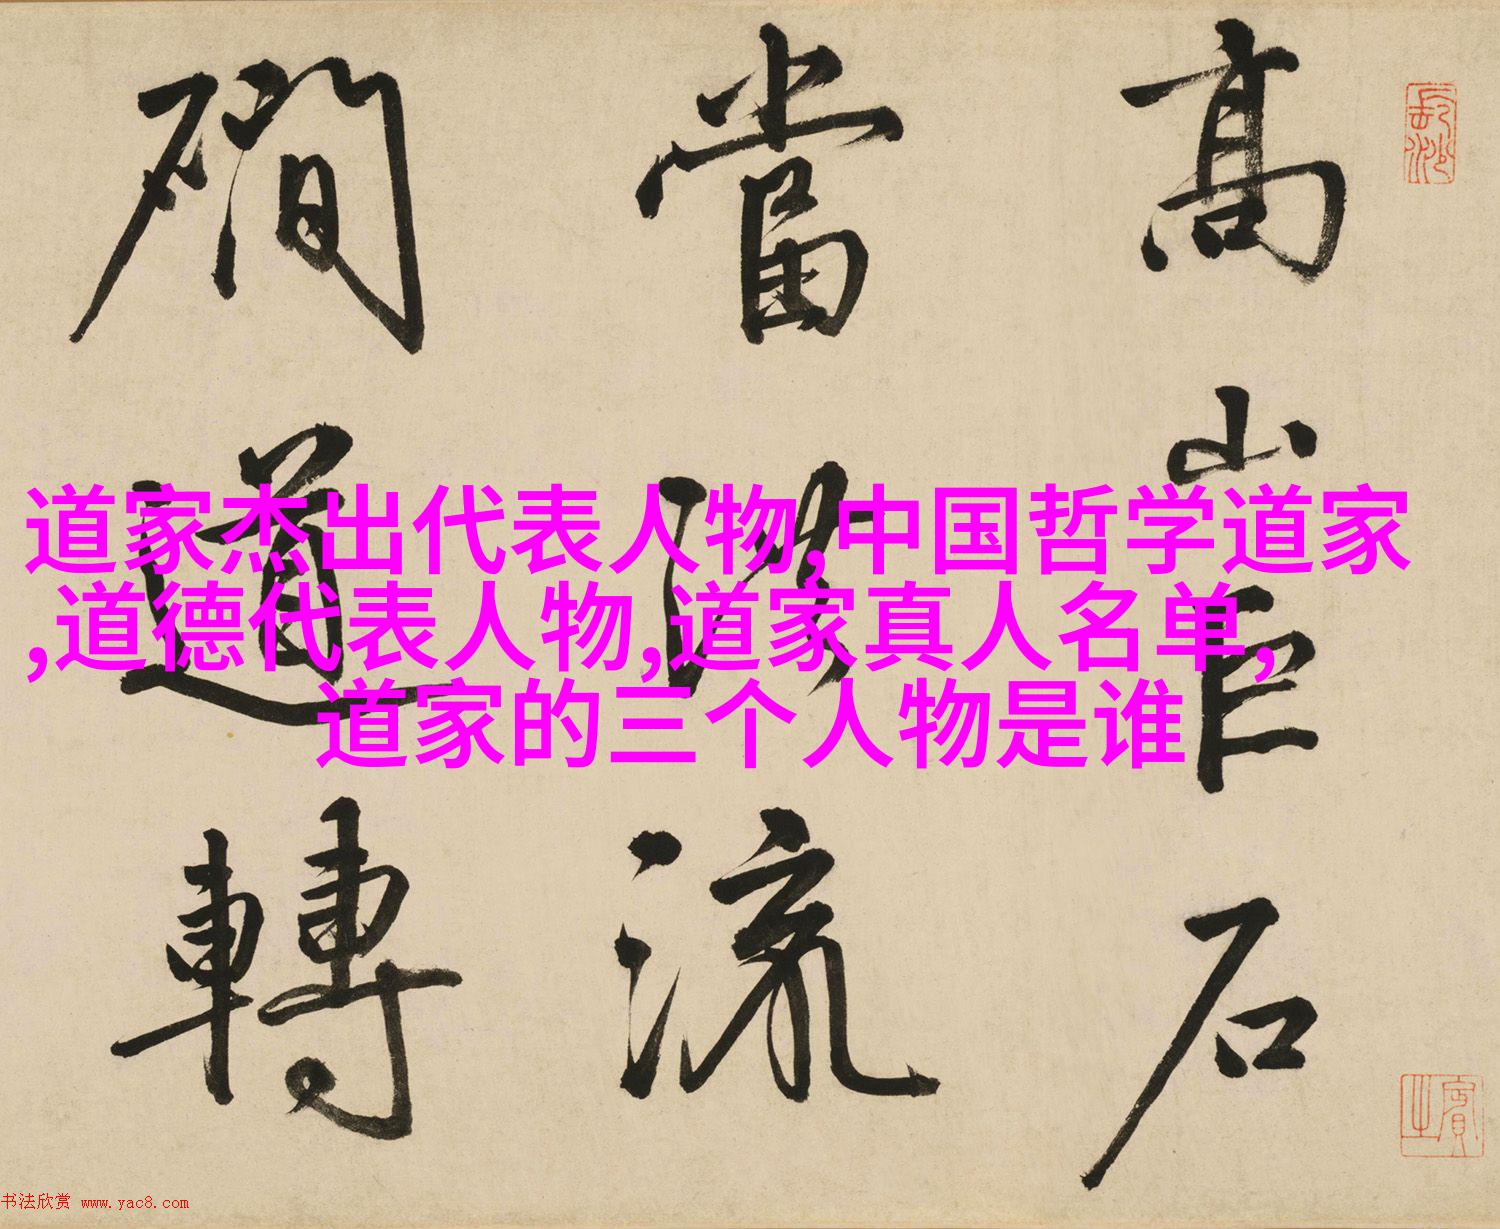 道家杰出代表人物,中国哲学道家
,道德代表人物,道家真人名单,
道家的三个人物是谁
長沙
高山巨石
賓之
當流
磵道轉
书法欣赏 www.yac8.com